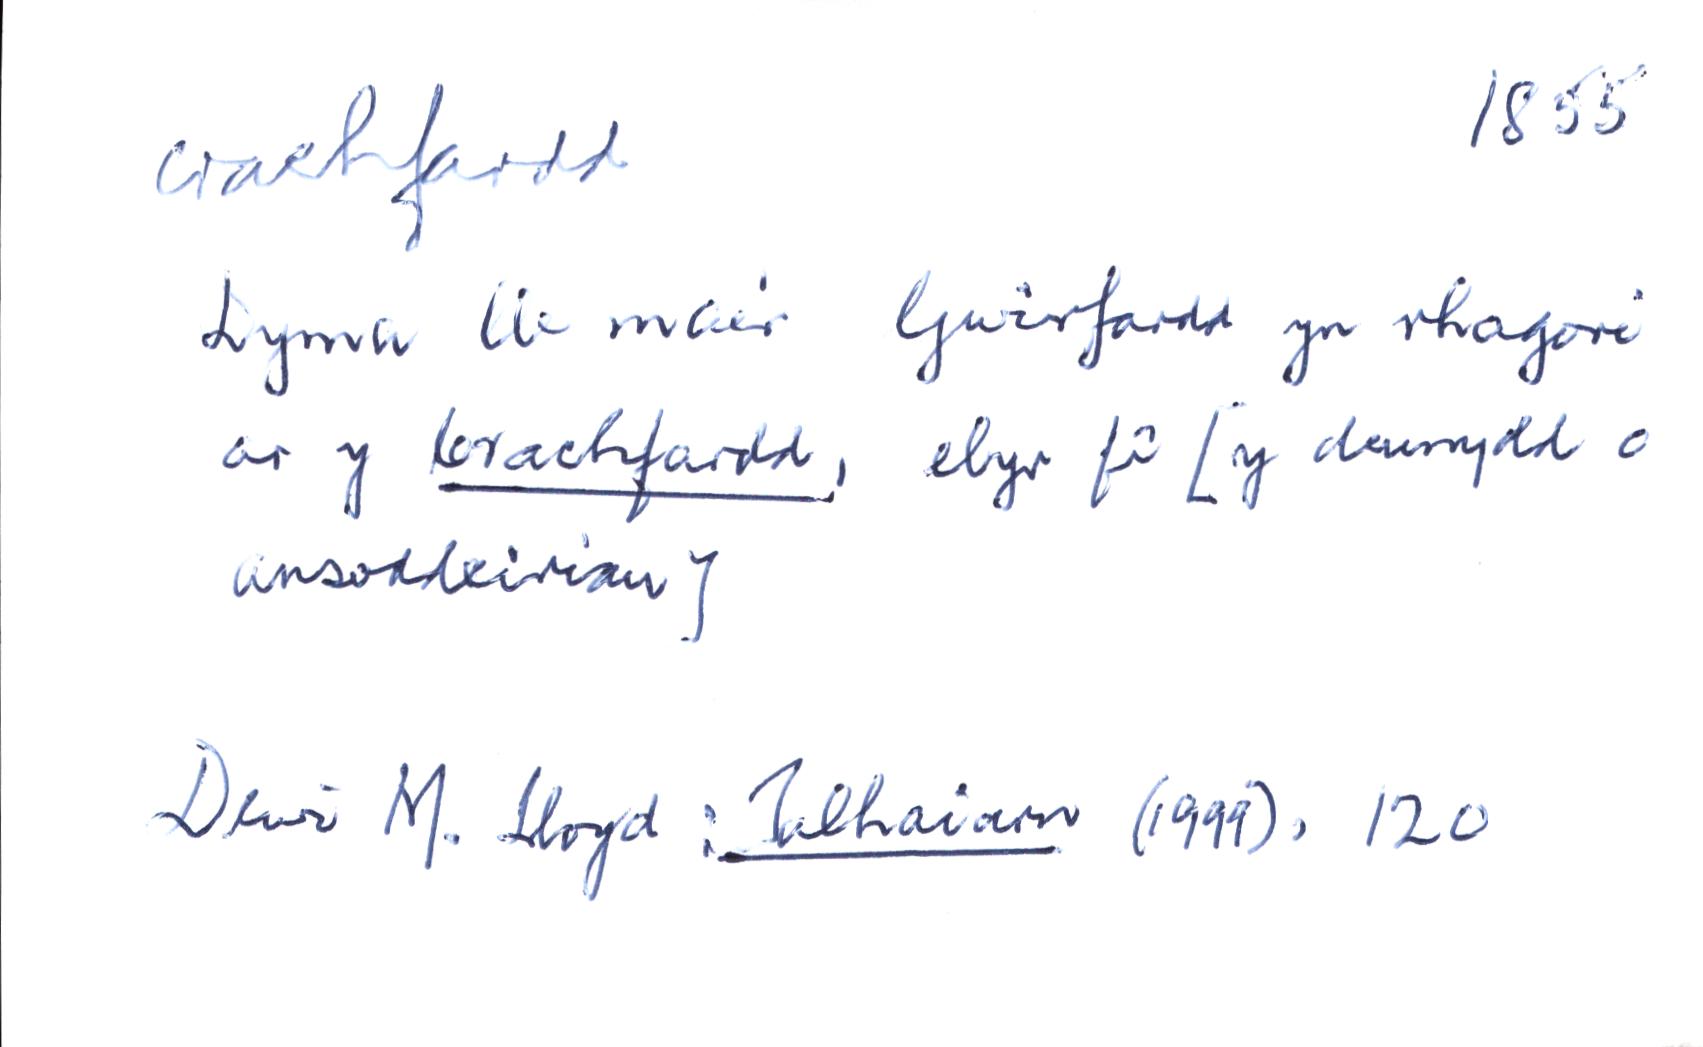 crachfardd 1855
Dyma lle mae'r Gwirfardd yn rhagori
ar y Crachfardd, ebyr fi [y deunydd o
ansoddeiriau]
Dewi M. Lloyd : Talhaiarn (1999), 120